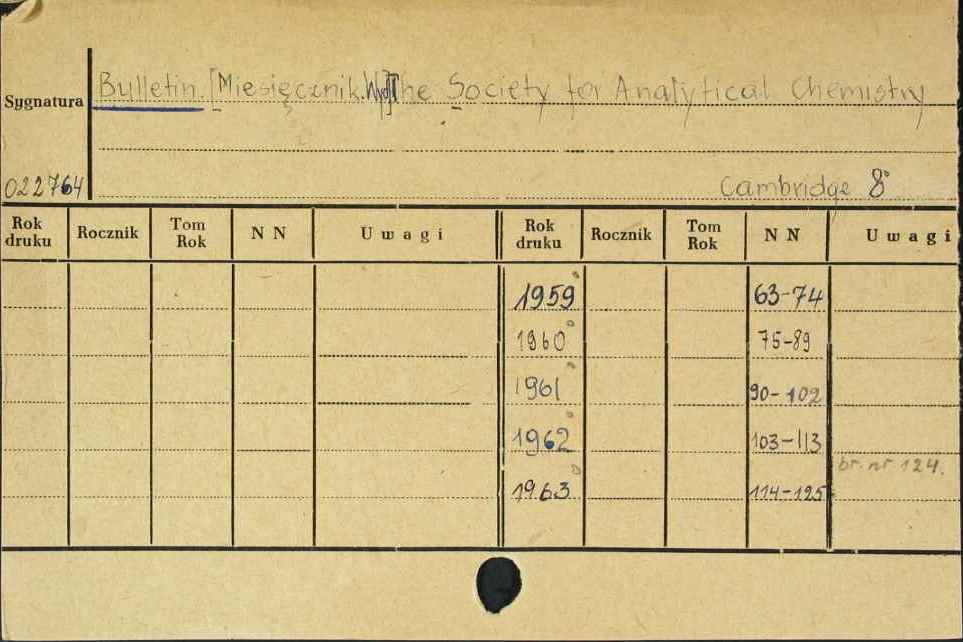 Bulletin. [Miesięcznik. Wyd] The Society for Analytical Chemistry
Sygnatura
022764
Cambridge 8°
Rok druku Rocznik Tom Rok N N Uwagi Rok druku Rocznik Tom Rok N N Uwagi
1959° 63-74
1960° 75-89
1961° 90-102
1962° 103-113
br. nr 124.
1963° 114-125